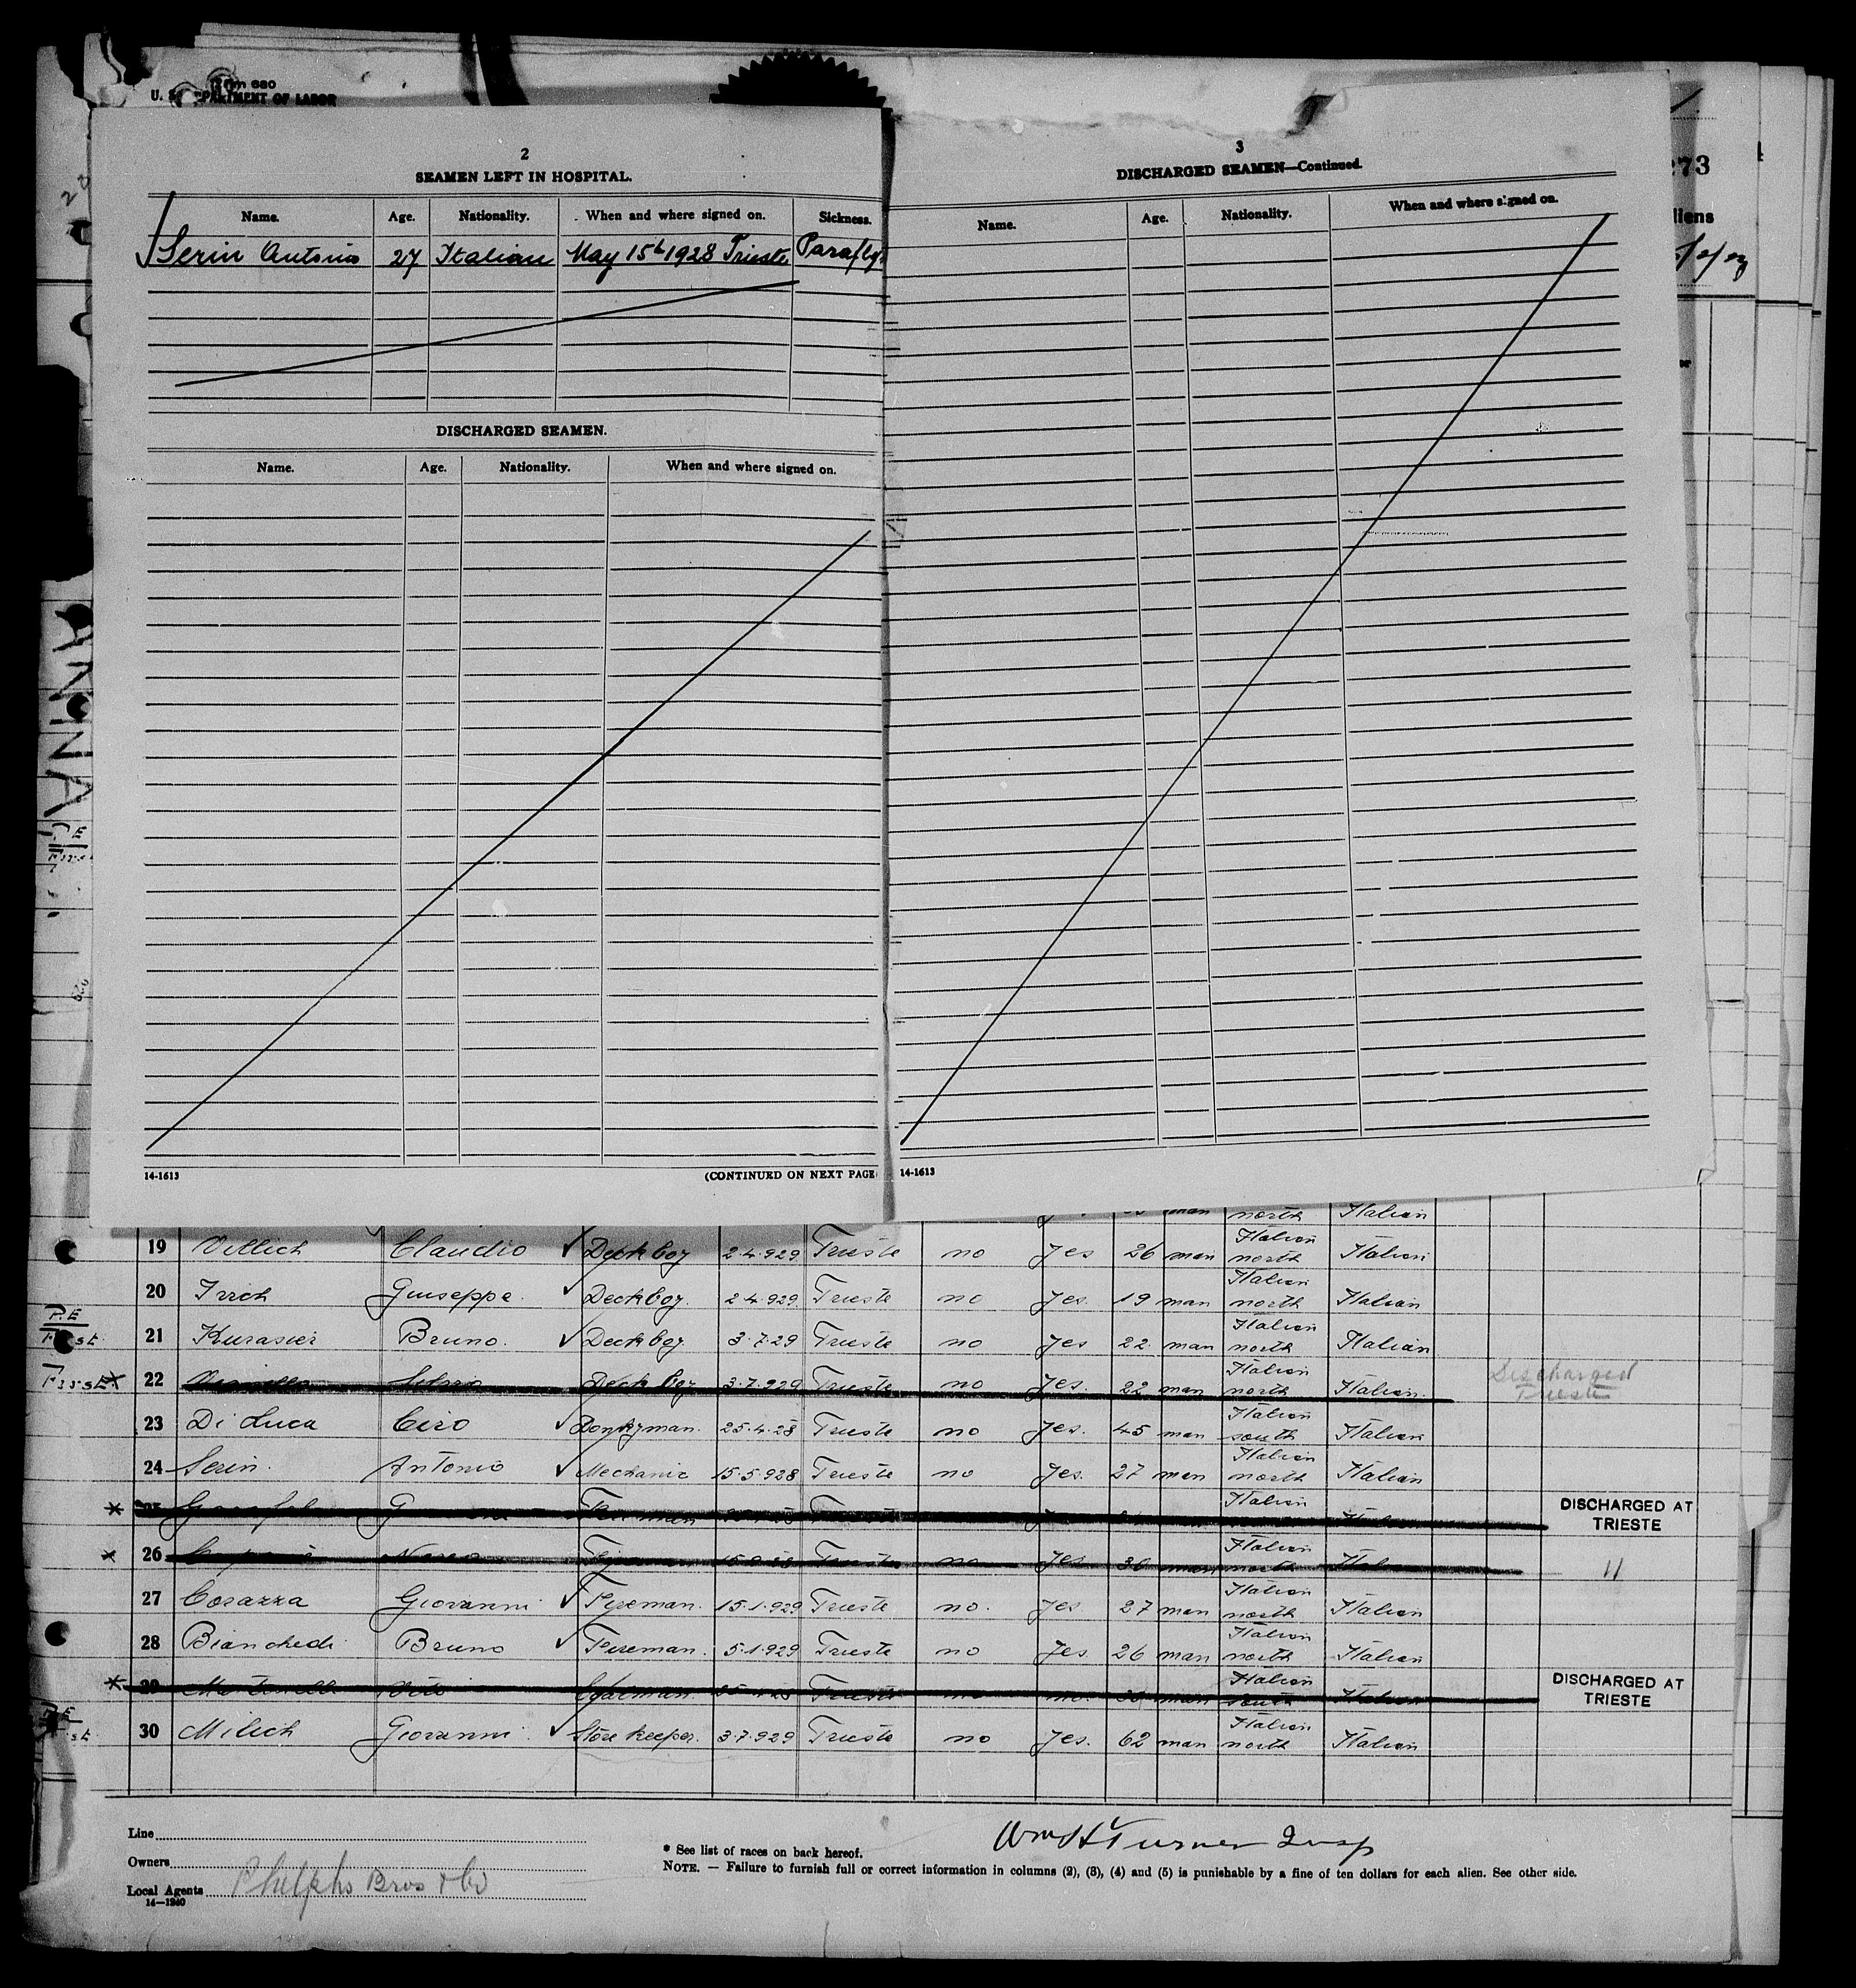 Form 680
U. S. DEPARTMENT OF LABOR
273
liens
2
SEAMEN LEFT IN HOSPITAL.
Name. Age. Nationality. When and where signed on. Sickness.
Serin Antonio 27 Italian May 15th 1928 Trieste
DISCHARGED SEAMEN.
Name. Age. Nationality. When and where signed on.
14-1613 (CONTINUED ON NEXT PAGE
3
DISCHARGED SEAMEN—Continued.
Name. Age. Nationality. When and where signed on.
14-1613
ANNA
north Italian
19 Claudio Deck boy 2.4.929 Trieste no Yes 26 man Italian north Italian
20 Giuseppe. Deck boy. 2.4.929 Trieste no Yes. 19 man Italian north Italian
P.E
First
21 Bruno. Deck boy. 3.7.29 Trieste no Yes 22 man Italian north Italian
First
22 Deck boy 3.7.929 Trieste no Yes. 22 man Italian north Italian. Discharged Trieste
23 Di Luca Ciro Donkyman. 25.4.28 Trieste no Yes. 45 man Italian south Italian
24 Serin. Antonio Mechanic 15.5.928 Trieste no Yes. 27 man Italian north Italian
Italian DISCHARGED AT
TRIESTE
26 Trieste no Yes 30 man Italian north 11
27 Corazza Giovanni Fyreman. 15.1.929 Trieste no. Yes 27 man Italian north Italian
28 Bianchedi Bruno Fireman. 5.1.929 Trieste no Yes 26 man Italian north Italian
29 Vito Coalman. Trieste man Italian south Italian DISCHARGED AT
TRIESTE
30 Milich Giovanni. Store keeper. 3.7.929 Trieste no Yes. 62 man Italian north Italian
Line
Owners
Local Agents Phelphs Bros & Co
14—1240
* See list of races on back hereof.
Wm H Turner Insp
NOTE. — Failure to furnish full or correct information in columns (2), (3), (4) and (5) is punishable by a fine of ten dollars for each alien. See other side.